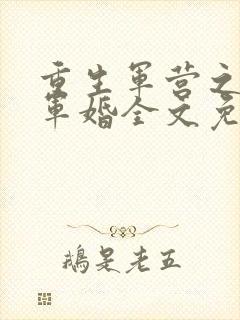 重生军营之
军婚全文免
鵝是老五